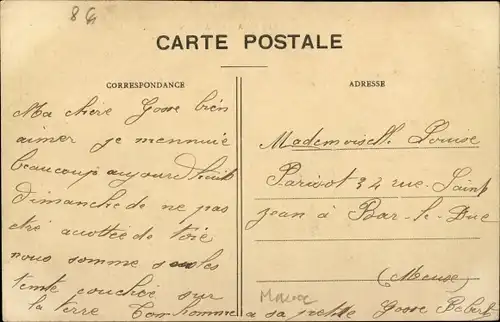 8 G
CARTE POSTALE
CORRESPONDANCE
Ma chère Gosse bien
aimer je mennuié
beaucoup aujourdhuit
dimanche de ne pas
etré acottée de toié
nous somme seules
tente couchée sur
la terre Ton homme a sa petite Gosse Robert
ADRESSE
Mademoiselle Louise
Parisot 34 rue Saint
Jean à Bar-le-Duc
(Meuse)
Maroc